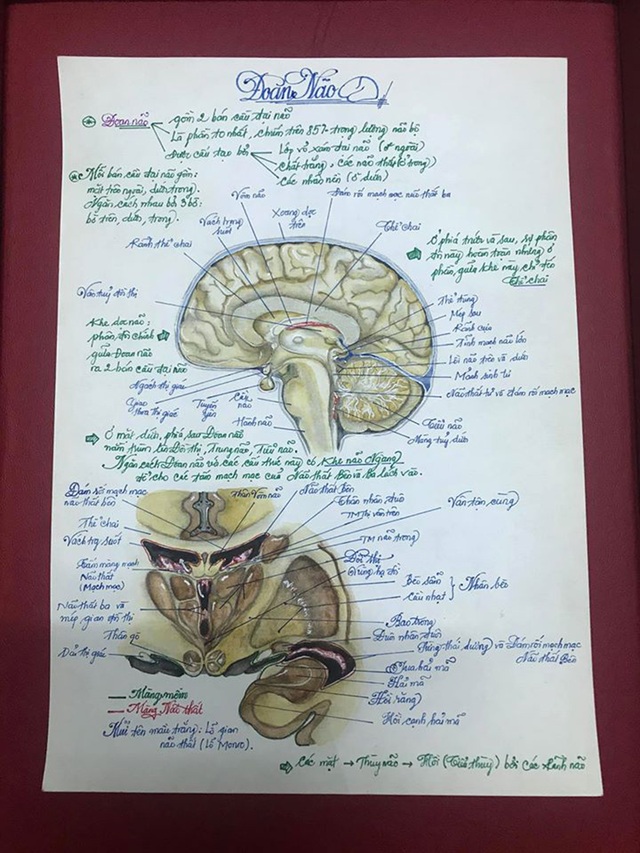 Đoan Não
Đoan não
gồm 2 bán cầu đại não
Là phần to nhất, chiếm trên 85% trọng lượng não bộ
Được cấu tạo bởi
Lớp vỏ xám đại não (ở ngoài)
Chất trắng, các não thất (ở trong)
Các nhân nền (ở dưới)
Mỗi bán cầu đại não gồm:
mặt trên ngoài, dưới, trong.
Ngăn cách nhau bởi 3 bờ:
bờ trên, dưới, trong.
Vòm não
Đám rối mạch mạc não thất ba
Vách trong suốt
Xoang dọc trên
Thể chai
Rãnh thể chai
Ở phía trước và sau, sự phân
tách này hoàn toàn nhưng ở
phần giữa khe này chỉ tới
Thể chai
Vân tuỷ đồi thị
Khe dọc não:
phân tách chính
giữa Đoan não
ra 2 bán cầu đại não
Thể tùng
Mép sau
Rãnh cựa
Tĩnh mạch não lớn
Lồi não trên và dưới
Mảnh sinh tư
Não thất tư và đám rối mạch mạc
Ngách thị giác
Giao thoa thị giác
Tuyến yên
Cầu não
Hành não
Tiểu não
Màng tuỷ dưới
Ở mặt dưới, phía sau Đoan não
nằm trùm lên Đồi thị, Trung não, Tiểu não.
Ngăn cách Đoan não với các cấu trúc này có Khe não Ngang
để cho các tấm mạch mạc của Não thất Bên và Ba lách vào.
Đám rối mạch mạc
não thất bên
Thân Vòm não
Não thất Bên
Thân nhân đuôi
TM Thị vân trên
TM não trong
Vân tận cùng
Thể chai
Vách trg suốt
Tấm màng mạch
Não thất
(Mạch mạc)
Đồi thị
Vùng hạ đồi
Bèo sẫm
Cầu nhạt
Nhân bèo
Não thất ba và
mép gian đồi thị
Bao trong
Đuôi nhân đuôi
Thân gỗ
Dải thị giác
Sừng thái dương và Đám rối mạch mạc
Não thất Bên
Tua hải mã
Hải mã
Hồi răng
Hồi cạnh hải mã
Màng mềm
Màng Não thất
Mũi tên màu trắng: Lỗ gian
não thất (Lỗ Monro).
Các mặt → Thùy não → Hồi (Tiểu thùy) bởi các rãnh não